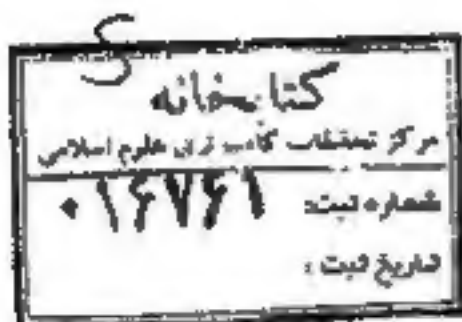 کتابخانه
مرکز تحقیقات کامپیوتری علوم اسلامی
شماره ثبت: ۰۱۶۷۶۱
تاریخ ثبت: